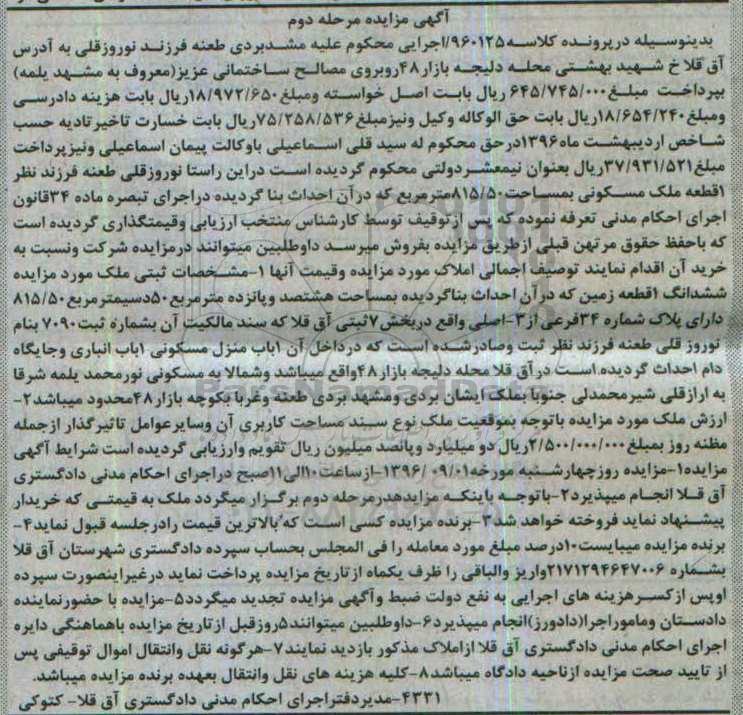 آگهی مزایده مرحله دوم
بدینوسیله درپرونده کلاسه۹۶۰۱۲۵/اجرایی محکوم علیه مشدبردی طعنه فرزند نوروزقلی به آدرس
آق قلا خ شهید بهشتی محله دلیجه بازار۴۸روبروی مصالح ساختمانی عزیز(معروف به مشهد یلمه)
بپرداخت مبلغ۶۴۵/۷۴۵/۰۰۰ ریال بابت اصل خواسته ومبلغ۱۸/۹۷۲/۶۵۰ریال بابت هزینه دادرسی
ومبلغ۱۸/۶۵۴/۲۴۰ریال بابت حق الوکاله وکیل ونیزمبلغ۷۵/۲۵۸/۵۳۶ریال بابت خسارت تاخیرتادیه حسب
شاخص اردیبهشت ماه۱۳۹۶درحق محکوم له سید قلی اسماعیلی باوکالت پیمان اسماعیلی ونیزپرداخت
مبلغ۳۷/۹۳۱/۵۲۱ریال بعنوان نیمعشردولتی محکوم گردیده است دراین راستا نوروزقلی طعنه فرزند نظر
۱قطعه ملک مسکونی بمساحت۸۱۵/۵۰مترمربع که درآن احداث بنا گردیده دراجرای تبصره ماده ۳۴قانون
اجرای احکام مدنی تعرفه نموده که پس ازتوقیف توسط کارشناس منتخب ارزیابی وقیمتگذاری گردیده است
که باحفظ حقوق مرتهن قبلی ازطریق مزایده بفروش میرسد داوطلبین میتوانند درمزایده شرکت ونسبت به
خرید آن اقدام نمایند توصیف اجمالی املاک مورد مزایده وقیمت آنها ۱-مشخصات ثبتی ملک مورد مزایده
ششدانگ ۱قطعه زمین که درآن احداث بناگردیده بمساحت هشتصد وپانزده مترمربع۵۰دسیمترمربع۸۱۵/۵۰
دارای پلاک شماره ۳۴فرعی از۳-اصلی واقع دربخش۷ثبتی آق قلا که سند مالکیت آن بشماره ثبت۷۰۹۰ بنام
نوروز قلی طعنه فرزند نظر ثبت وصادرشده است که درداخل آن ۱باب منزل مسکونی ۱باب انباری وجایگاه
دام احداث گردیده است درآق قلا محله دلیجه بازار۴۸واقع میباشد وشمالا به مسکونی نورمحمد یلمه شرقا
به ارازقلی شیرمحمدلی جنوبا بملک ایشان بردی ومشهد بردی طعنه وغربا بکوچه بازار۴۸محدود میباشد۲-
ارزش ملک مورد مزایده باتوجه بموقعیت ملک نوع سند مساحت کاربری آن وسایرعوامل تاثیرگذار ازجمله
مظنه روز بمبلغ۲/۵۰۰/۰۰۰/۰۰۰ریال دو میلیارد وپانصد میلیون ریال تقویم وارزیابی گردیده است شرایط آگهی
مزایده۱-مزایده روزچهارشنبه مورخه۱۳۹۶/۰۹/۰۱-ازساعت۱۰الی۱۱صبح دراجرای احکام مدنی دادگستری
آق قلا انجام میپذیرد۲-باتوجه باینکه مزایدهدرمرحله دوم برگزار میگردد ملک به قیمتی که خریدار
پیشنهاد نماید فروخته خواهد شد۳-برنده مزایده کسی است که بالاترین قیمت رادرجلسه قبول نماید۴-
برنده مزایده میبایست۱۰درصد مبلغ مورد معامله را فی المجلس بحساب سپرده دادگستری شهرستان آق قلا
بشماره ۲۱۷۱۲۹۴۶۴۷۰۰۶واریز والباقی را ظرف یکماه ازتاریخ مزایده پرداخت نماید درغیراینصورت سپرده
اوپس ازکسرهزینه های اجرایی به نفع دولت ضبط وآگهی مزایده تجدید میگردد۵-مزایده با حضورنماینده
دادستان وماموراجرا(دادورز)انجام میپذیرد۶-داوطلبین میتوانند۵روزقبل ازتاریخ مزایده باهماهنگی دایره
اجرای احکام مدنی دادگستری آق قلا ازاملاک مذکور بازدید نمایند۷-هرگونه نقل وانتقال اموال توقیفی پس
از تایید صحت مزایده ازناحیه دادگاه میباشد۸-کلیه هزینه های نقل وانتقال بعهده برنده مزایده میباشد.
۴۳۳۱-مدیردفتراجرای احکام مدنی دادگستری آق قلا- کتوکی